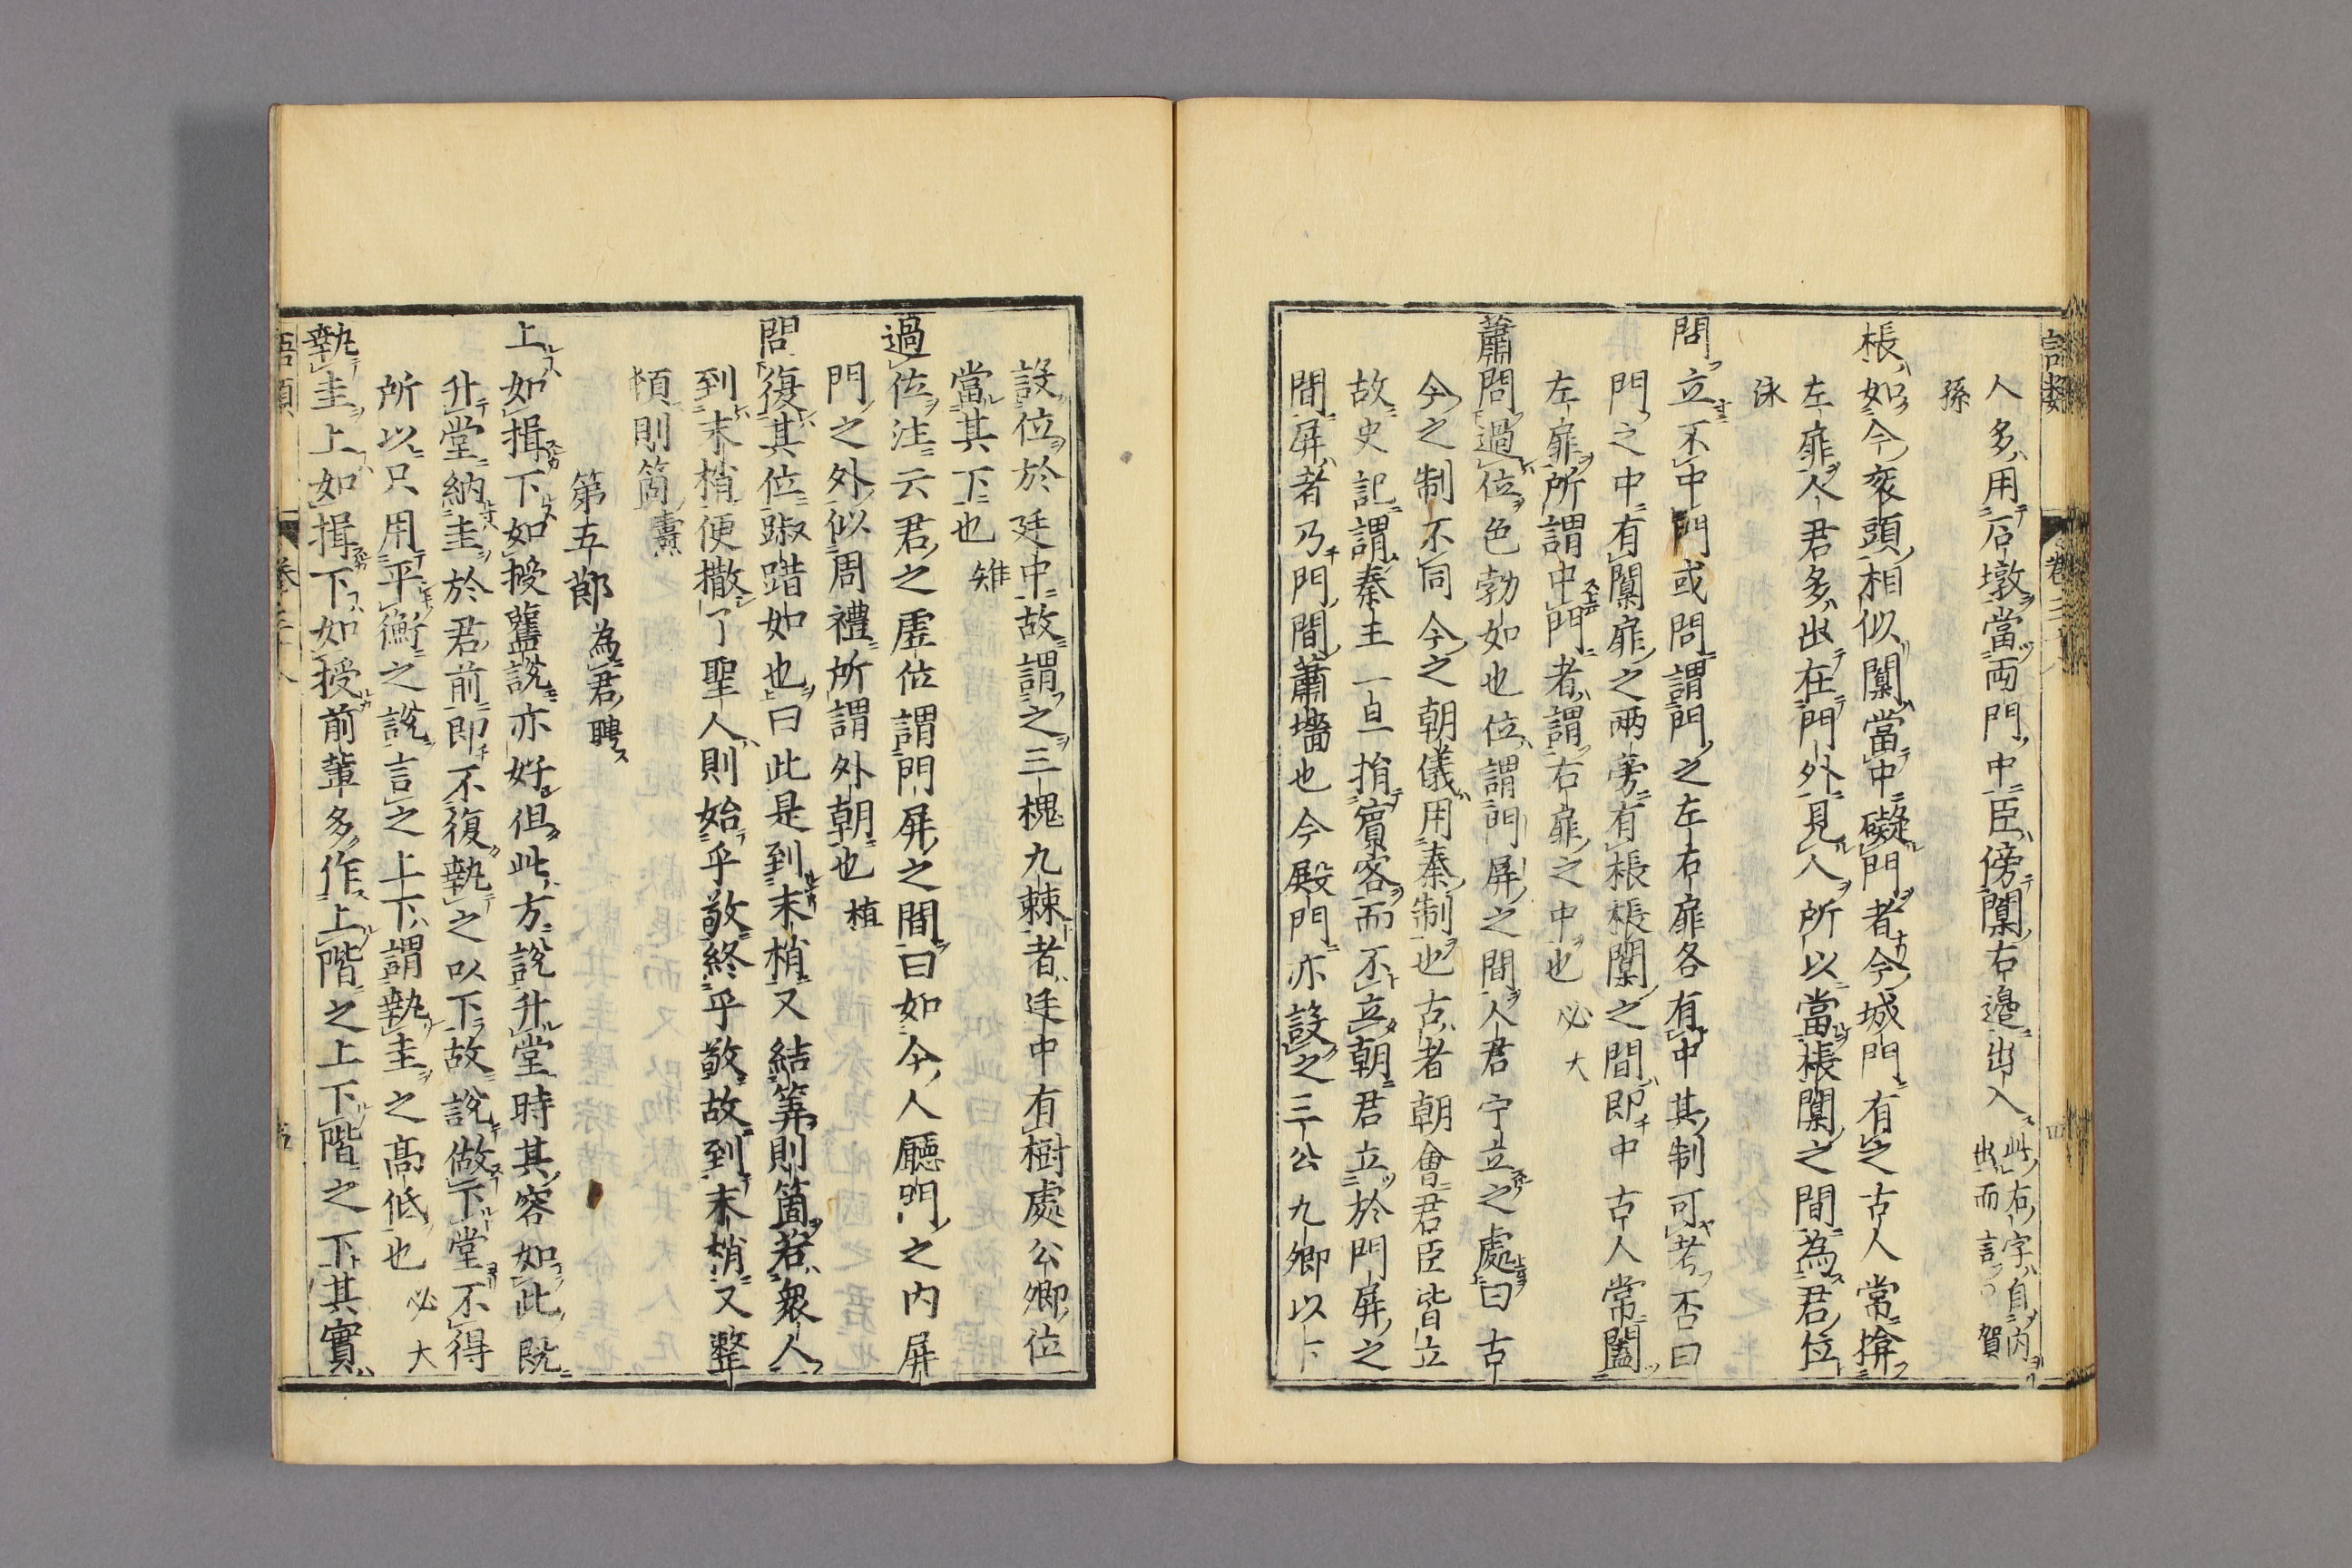 人多用石墩當両門中臣傍闑右邉出入此右字自内
出而言賀
孫
棖如今衮頭相似闑當中礙門者今城門有之古人常揜
左扉人君多出在門外見人所以當棖闑之間為君位
泳
問立不中門或問謂門之左右扉各有中其制可考否曰
門之中有闑扉之兩旁有棖棖闑之間即中古人常闔
左扉所謂中門者謂右扉之中也必大
蕭問過位色勃如也位謂門屏之間人君宁立之處曰古
今之制不同今之朝儀用秦制也古者朝會君臣皆立
故史記謂秦王一旦捐賓客而不立朝君立於門屏之
間屏者乃門間蕭墻也今殿門亦設之三公九卿以下
設位於廷中故謂之三槐九棘者廷中有樹處公卿位
當其下也雉
過位注云君之虛位謂門屏之間曰如今人廳門之内屏
門之外似周禮所謂外朝也植
問復其位踧踖如也曰此是到末梢又結筭則箇若衆人
到末梢便撒了聖人則始乎敬終乎敬故到末梢又整
頓則箇燾
第五節為君聘
上如揖下如授舊說亦好但此方說升堂時其容如此既
升堂納圭於君前即不復執之以下故說做下堂不得
所以只用平衡之說言之上下謂執圭之高低也必大
執圭上如揖下如授前軰多作上階之上下階之下其實